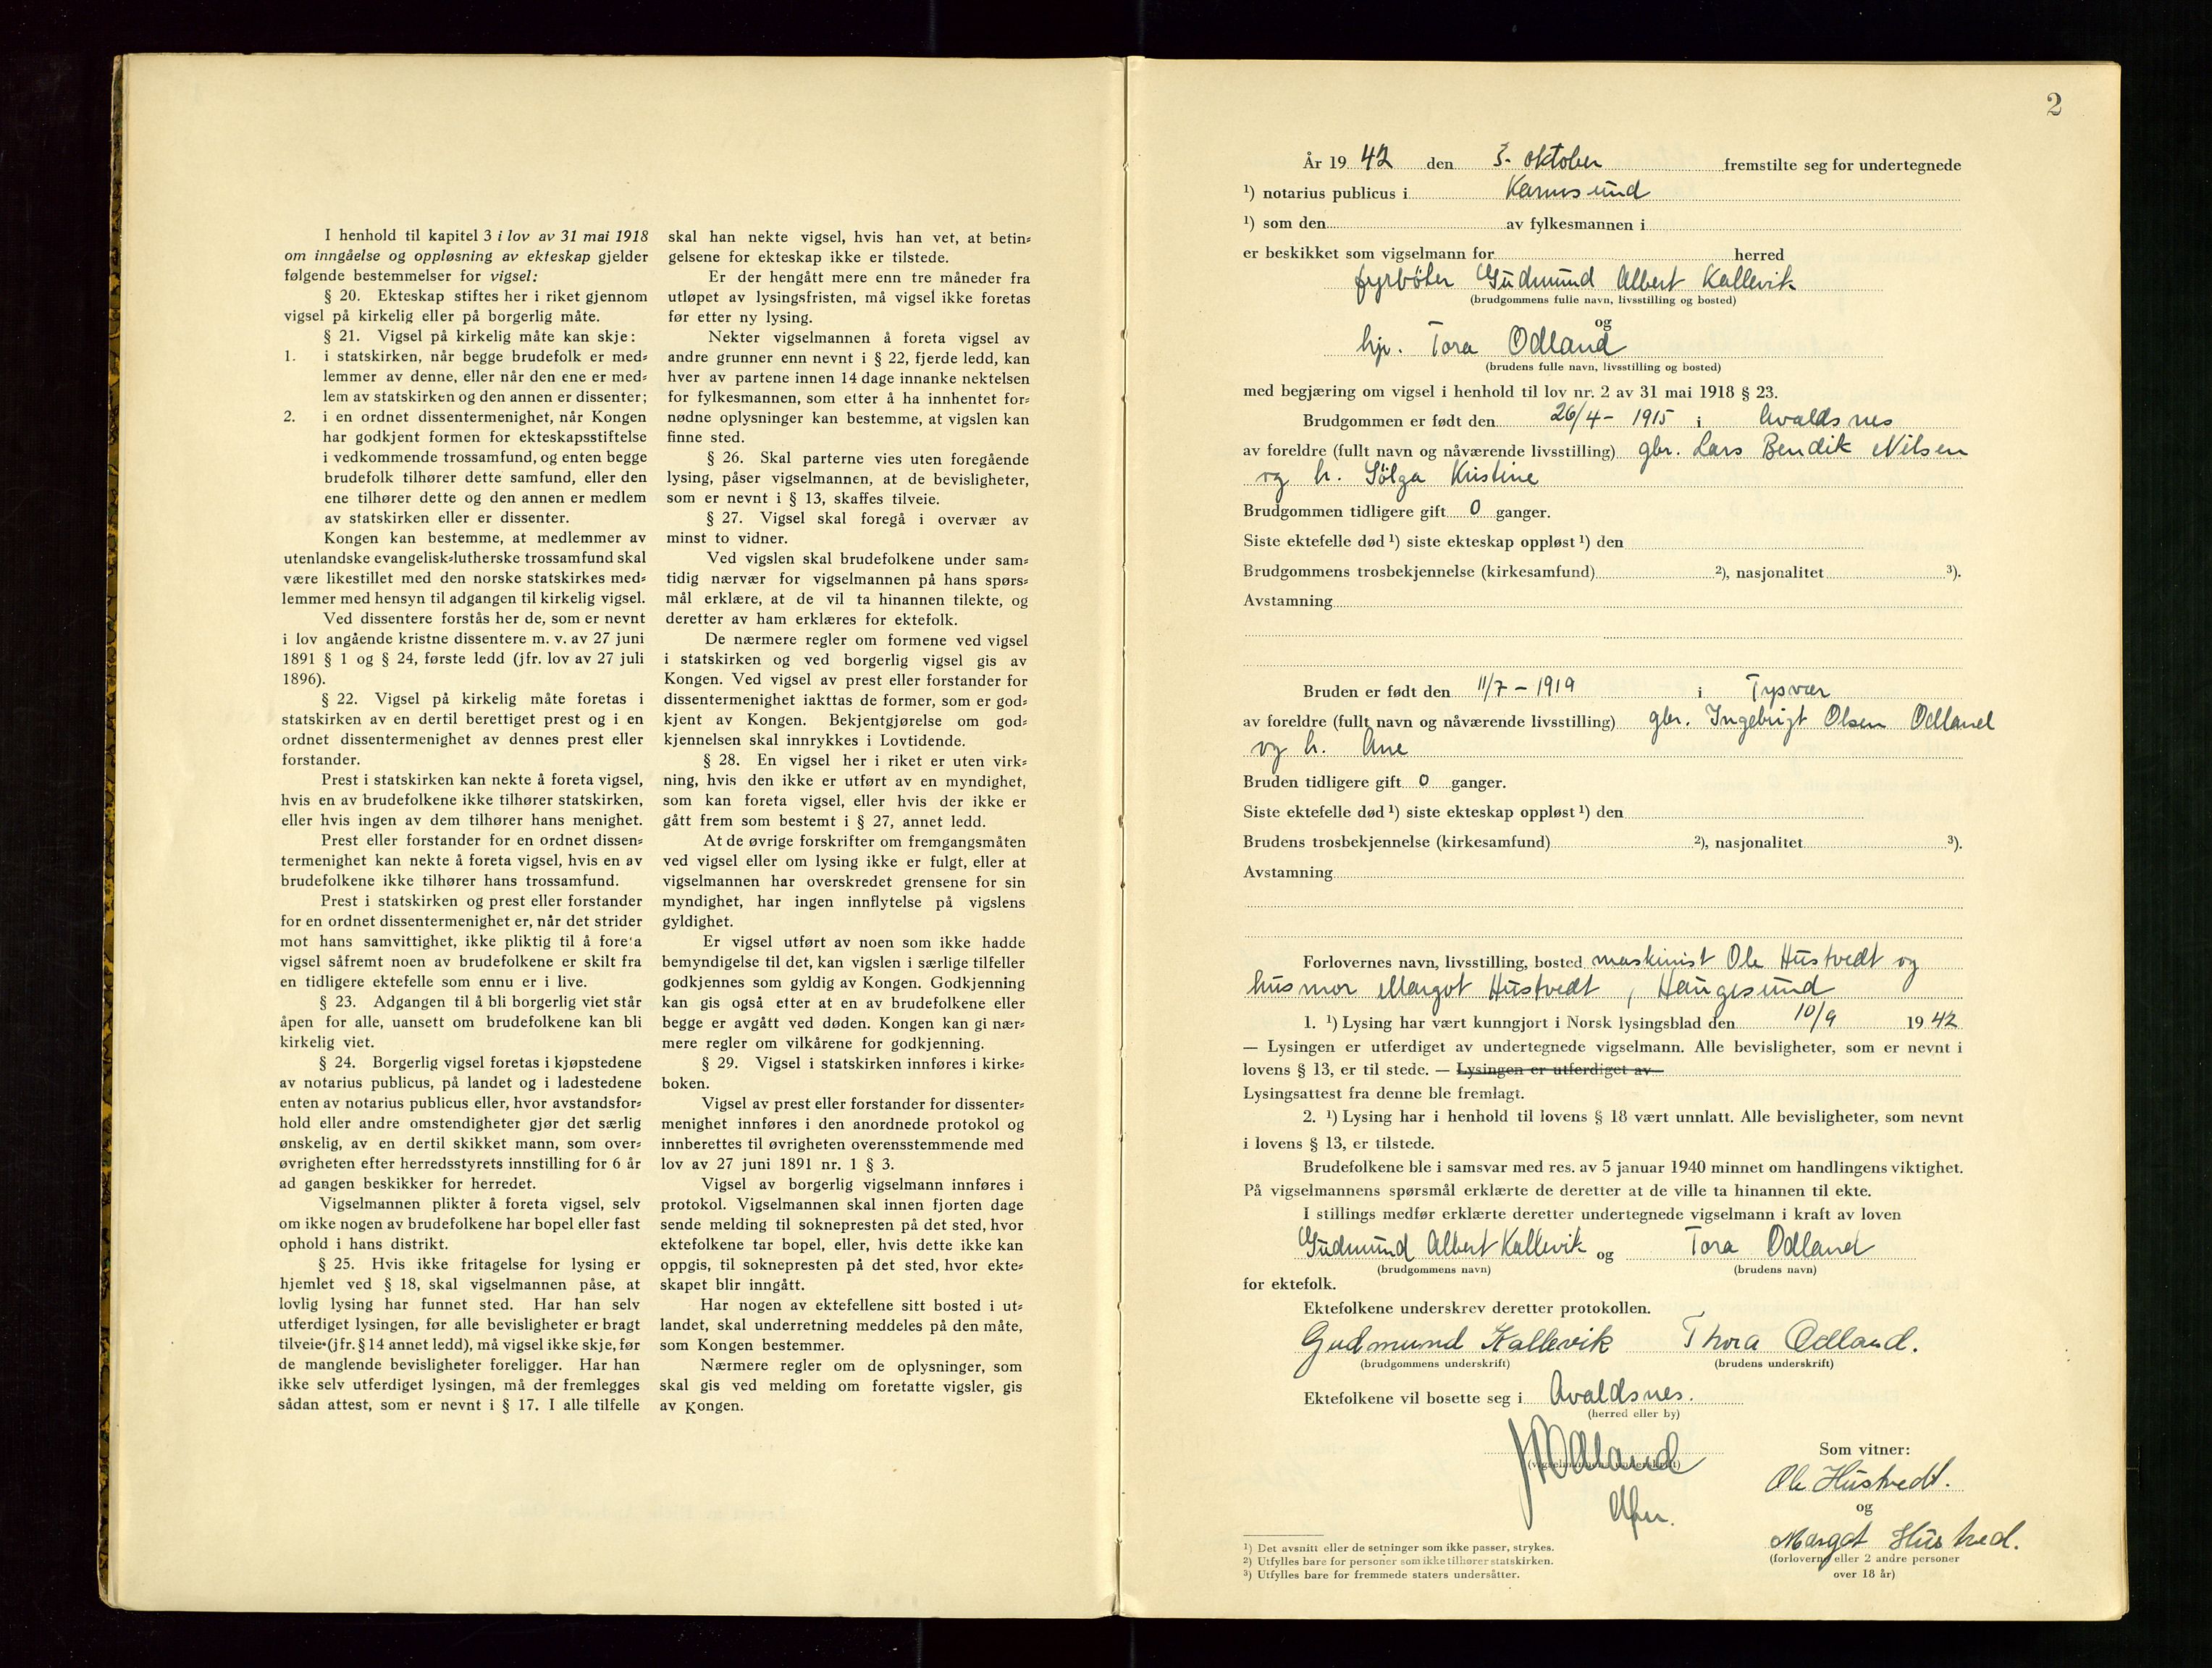 I henhold til kapitel 3 i lov av 31 mai 1918
om inngåelse og oppløsning av ekteskap gjelder
følgende bestemmelser for vigsel:
§ 20. Ekteskap stiftes her i riket gjennom
vigsel på kirkelig eller på borgerlig måte.
§ 21. Vigsel på kirkelig måte kan skje:
1. i statskirken, når begge brudefolk er med-
lemmer av denne, eller når den ene er med-
lem av statskirken og den annen er dissenter;
2. i en ordnet dissentermenighet, når Kongen
har godkjent formen for ekteskapsstiftelse
i vedkommende trossamfund, og enten begge
brudefolk tilhører dette samfund, eller den
ene tilhører dette og den annen er medlem
av statskirken eller er dissenter.
Kongen kan bestemme, at medlemmer av
utenlandske evangelisk-lutherske trossamfund skal
være likestillet med den norske statskirkes med-
lemmer med hensyn til adgangen til kirkelig vigsel.
Ved dissentere forstås her de, som er nevnt
i lov angående kristne dissentere m. v. av 27 juni
1891 § 1 og § 24, første ledd (jfr. lov av 27 juli
1896).
§ 22. Vigsel på kirkelig måte foretas i
statskirken av en dertil berettiget prest og i en
ordnet dissentermenighet av dennes prest eller
forstander.
Prest i statskirken kan nekte å foreta vigsel,
hvis en av brudefolkene ikke tilhører statskirken,
eller hvis ingen av dem tilhører hans menighet.
Prest eller forstander for en ordnet dissen-
termenighet kan nekte å foreta vigsel, hvis en av
brudefolkene ikke tilhører hans trossamfund.
Prest i statskirken og prest eller forstander
for en ordnet dissentermenighet er, når det strider
mot hans samvittighet, ikke pliktig til å foreta
vigsel såfremt noen av brudefolkene er skilt fra
en tidligere ektefelle som ennu er i live.
§ 23. Adgangen til å bli borgerlig viet står
åpen for alle, uansett om brudefolkene kan bli
kirkelig viet.
§ 24. Borgerlig vigsel foretas i kjøpstedene
av notarius publicus, på landet og i ladestedene
enten av notarius publicus eller, hvor avstandsfor-
hold eller andre omstendigheter gjør det særlig
ønskelig, av en dertil skikket mann, som over-
øvrigheten efter herredsstyrets innstilling for 6 år
ad gangen beskikker for herredet.
Vigselmannen plikter å foreta vigsel, selv
om ikke nogen av brudefolkene har bopel eller fast
ophold i hans distrikt.
§ 25. Hvis ikke fritagelse for lysing er
hjemlet ved § 18, skal vigselmannen påse, at
lovlig lysing har funnet sted. Har han selv
utferdiget lysingen, før alle bevisligheter er bragt
tilveie (jfr. § 14 annet ledd), må vigsel ikke skje, før
de manglende bevisligheter foreligger. Har han
ikke selv utferdiget lysingen, må der fremlegges
sådan attest, som er nevnt i § 17. I alle tilfelle
skal han nekte vigsel, hvis han vet, at betin-
gelsene for ekteskap ikke er tilstede.
Er der hengått mere enn tre måneder fra
utløpet av lysingsfristen, må vigsel ikke foretas
før etter ny lysing.
Nekter vigselmannen å foreta vigsel av
andre grunner enn nevnt i § 22, fjerde ledd, kan
hver av partene innen 14 dage innanke nektelsen
for fylkesmannen, som etter å ha innhentet for-
nødne oplysninger kan bestemme, at vigslen kan
finne sted.
§ 26. Skal parterne vies uten foregående
lysing, påser vigselmannen, at de bevisligheter,
som er nevnt i § 13, skaffes tilveie.
§ 27. Vigsel skal foregå i overvær av
minst to vidner.
Ved vigslen skal brudefolkene under sam-
tidig nærvær for vigselmannen på hans spørs-
mål erklære, at de vil ta hinannen tilekte, og
deretter av ham erklæres for ektefolk.
De nærmere regler om formene ved vigsel
i statskirken og ved borgerlig vigsel gis av
Kongen. Ved vigsel av prest eller forstander for
dissentermenighet iakttas de former, som er god-
kjent av Kongen. Bekjentgjørelse om god-
kjennelsen skal innrykkes i Lovtidende.
§ 28. En vigsel her i riket er uten virk-
ning, hvis den ikke er utført av en myndighet,
som kan foreta vigsel, eller hvis der ikke er
gått frem som bestemt i § 27, annet ledd.
At de øvrige forskrifter om fremgangsmåten
ved vigsel eller om lysing ikke er fulgt, eller at
vigselmannen har overskredet grensene for sin
myndighet, har ingen innflytelse på vigslens
gyldighet.
Er vigsel utført av noen som ikke hadde
bemyndigelse til det, kan vigslen i særlige tilfeller
godkjennes som gyldig av Kongen. Godkjenning
kan gis også etter at en av brudefolkene eller
begge er avgått ved døden. Kongen kan gi nær-
mere regler om vilkårene for godkjenning.
§ 29. Vigsel i statskirken innføres i kirke-
boken.
Vigsel av prest eller forstander for dissenter-
menighet innføres i den anordnede protokol og
innberettes til øvrigheten overensstemmende med
lov av 27 juni 1891 nr. 1 § 3.
Vigsel av borgerlig vigselmann innføres i
protokol. Vigselmannen skal innen fjorten dage
sende melding til soknepresten på det sted, hvor
ektefolkene tar bopel, eller, hvis dette ikke kan
oppgis, til soknepresten på det sted, hvor ekte-
skapet blir inngått.
Har nogen av ektefellene sitt bosted i ut-
landet, skal underretning meddeles på den måte,
som Kongen bestemmer.
Nærmere regler om de oplysninger, som
skal gis ved melding om foretatte vigsler, gis
av Kongen.
2
År 19 42 den 3. oktober fremstilte seg for undertegnede
¹) notarius publicus i Karmsund
¹) som den av fylkesmannen i
er beskikket som vigselmann for herred
fyrbøter Gudmund Albert Kallevik
(brudgommens fulle navn, livsstilling og bosted)
og
hje. Tora Odland
(brudens fulle navn, livsstilling og bosted)
med begjæring om vigsel i henhold til lov nr. 2 av 31 mai 1918 § 23.
Brudgommen er født den 26/4 - 1915 i Avaldsnes
av foreldre (fullt navn og nåværende livsstilling) gbr. Lars Bendik Nilsen
og h. Sølga Kristine
Brudgommen tidligere gift 0 ganger.
Siste ektefelle død ¹) siste ekteskap oppløst ¹) den
Brudgommens trosbekjennelse (kirkesamfund) ²), nasjonalitet ³).
Avstamning
Bruden er født den 11/7 - 1919 i Tysvær
av foreldre (fullt navn og nåværende livsstilling) gbr. Ingebrigt Olsen Odland
og h. Ane
Bruden tidligere gift 0 ganger.
Siste ektefelle død ¹) siste ekteskap oppløst ¹) den
Brudens trosbekjennelse (kirkesamfund) ²), nasjonalitet ³).
Avstamning
Forlovernes navn, livsstilling, bosted maskinist Ole Hustvedt og
husmor Margot Hustvedt, Haugesund
1. ¹) Lysing har vært kunngjort i Norsk lysingsblad den 10/9 19 42
— Lysingen er utferdiget av undertegnede vigselmann. Alle bevisligheter, som er nevnt i
lovens § 13, er til stede. — Lysingen er utferdiget av
Lysingsattest fra denne ble fremlagt.
2. ¹) Lysing har i henhold til lovens § 18 vært unnlatt. Alle bevisligheter, som nevnt
i lovens § 13, er tilstede.
Brudefolkene ble i samsvar med res. av 5 januar 1940 minnet om handlingens viktighet.
På vigselmannens spørsmål erklærte de deretter at de ville ta hinannen til ekte.
I stillings medfør erklærte deretter undertegnede vigselmann i kraft av loven
Gudmund Albert Kallevik og Tora Odland
(brudgommens navn) (brudens navn)
for ektefolk.
Ektefolkene underskrev deretter protokollen.
Gudmund Kallevik Thora Odland.
(brudgommens underskrift) (brudens underskrift)
Ektefolkene vil bosette seg i Avaldsnes.
(herred eller by)
(vigselmannens underskrift)
Som vitner:
Ole Hustvedt.
og
Margot Hustved.
(forloverne eller 2 andre personer
over 18 år)
¹) Det avsnitt eller de setninger som ikke passer, strykes.
²) Utfylles bare for personer som ikke tilhører statskirken.
³) Utfylles bare for fremmede staters undersåtter.